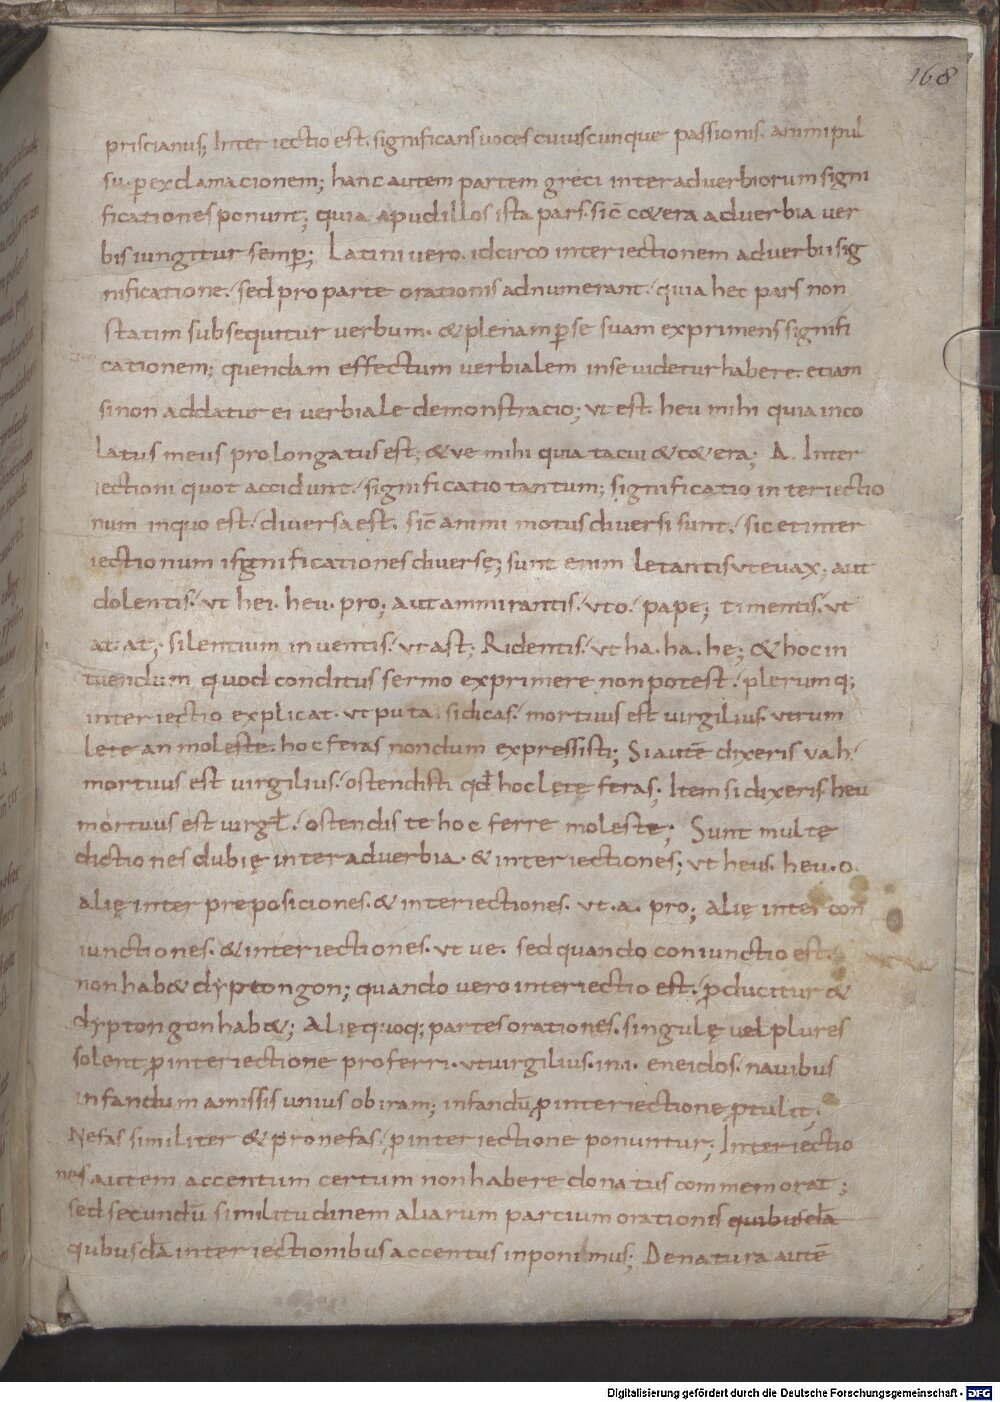 168
priscianus; Interiectio est. significans uoces cuiuscunque passionis. animi pul
su. p̄ exclamacionem; hanc autem partem greci inter aduerbiorum signi
ficationes ponunt; quia apud illos ista pars. sic̄ cæ&era aduerbia ver
bis iungitur semp̄; Latini uero. idcirco interiectionem aduerbii sig
nificatione. sed pro parte orationis adnumerant. quia hec pars non
statim subsequitur uerbum. & plenam p̄ se suam exprimens signifi
cationem; quendam effectum verbialem in se uidetur habere. etiam
si non addatur ei verbiale demonstracio; ut est. heu mihi quia inco
latus meus prolongatus est; & ve mihi quia tacui & c&era; Δ. Inter
iectioni quot accidunt. significatio tantum; significatio interiectio
num in quo est. diuersa est. sic̄ animi motus diuersi sunt. sic et inter
iectionum significationes diuersę; sunt enim letantis ut euax; aut
dolentis. ut hei. heu. pro; aut ammirantis. ut o. pape; timentis. ut
at at; silentium inuentis. ut ast; Ridentis. ut ha. ha. he; & hoc in
tuendum quod conditus sermo exprimere non potest. plerumq;
interiectio explicat. ut puta. si dicas. mortuus est uirgilius. utrum
lete an moleste. hoc feras nondum expressisti; Si autē dixeris vah.
mortuus est virgilius. ostendisti qđ hoc lętę feras; Item si dixeris heu
mortuus est uirgł. ostendis te hoc ferre moleste; Sunt multę
dictiones dubię inter aduerbia. & interiectiones; ut heus. heu. o.
alię inter preposiciones. & interiectiones. ut. a. pro; alię inter con
iunctiones. & interiectiones. ut ue. sed quando coniunctio est.
non hab& dyptongon; quando uero interiectio est. p̄ducitur &
dyptongon hab&; Alię quoq; partes orationes. singulę uel plures
solent p̄ interiectione proferri. ut uirgilius. in .i. eneidos. nauibus
infandum amissis unius ob iram; infandū p̄ interiectione p̄tulit;
Nefas similiter & pro nefas. p̄ interiectione ponuntur; Interiectio
nes autem accentum certum non habere donatus commemorat;
sed secundū similitudinem aliarum partium orationis quibusdā
qubusdā interiectionibus accentus inponimus; De natura autē
Digitalisierung gefördert durch die Deutsche Forschungsgemeinschaft - DFG